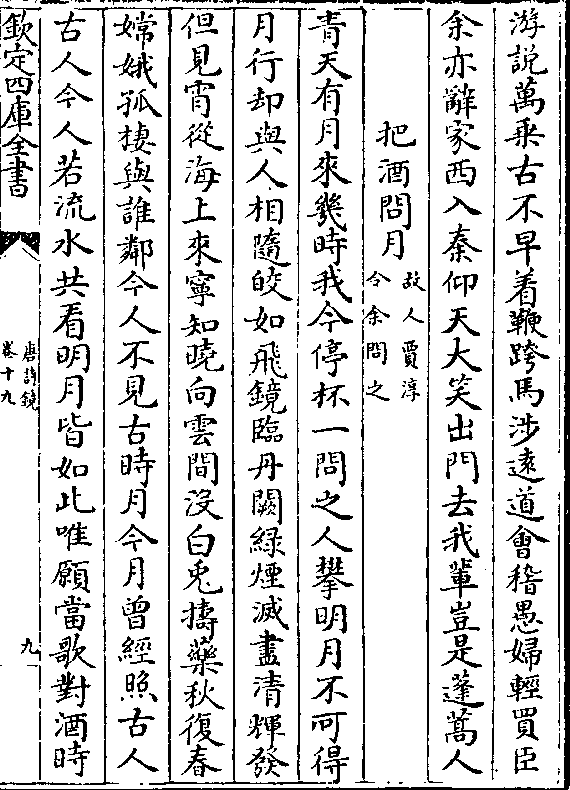 游説萬乗古不早着鞭跨馬涉逺道會稽愚婦輕買臣
余亦辭家西入秦仰天大笑出門去我軰豈是蓬蒿人
把酒問月
故人賈淳
令余問之
青天有月來幾時我今停杯一問之人攀明月不可得
月行却與人相隨皎如飛鏡臨丹闕緑煙滅盡清輝發
但見宵從海上來寧知曉向雲間没白兎擣藥秋復春
嫦娥孤棲與誰鄰今人不見古時月今月曾經照古人
古人今人若流水共看明月皆如此唯願當歌對酒時
欽定四庫全書
唐詩鏡
卷十九
九